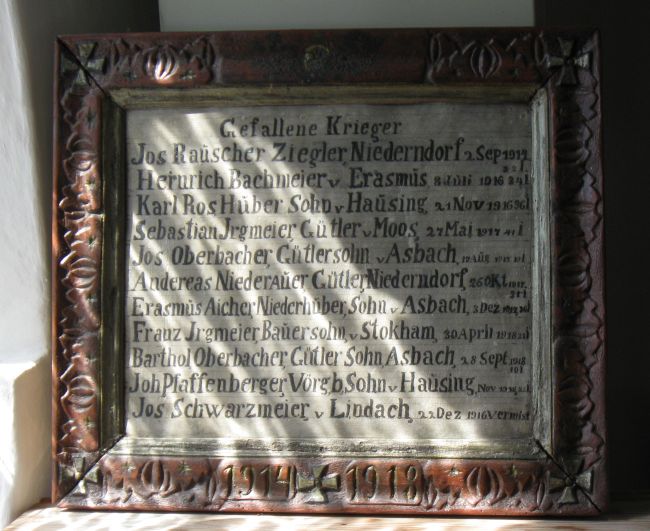 Gefallene Krieger
Jos Rauscher Ziegler, Niederndorf 2 Sep 1914
Heinrich Bachmeier v Erasmus 8 Juli 1916 24 J
Karl Ros Hüber Sohn v Haüsing, 21 Nov 1916
Sebastian Jrgmeier, Gütler v Moos, 27 Mai 1917
Jos Oberbacher, Gütlersohn v Asbach,
Andereas Niederaüer Gütler, Niederndorf, 26 Okt
Erasmüs Aicher Niederhüber, Sohn v Asbach, 3 Dez
Franz Jrgmeier Baüersohn, v Stokham, 30 April 1918
Barthol Oberbacher Gütler Sohn, Asbach, 28 Sept 1918
Joh Pfaffenberger, Vörg, b, Sohn v Haüsing, Nov
Jos Schwarzmeier, v Lindach, 22 Dez 1916 vermist
1914 1918